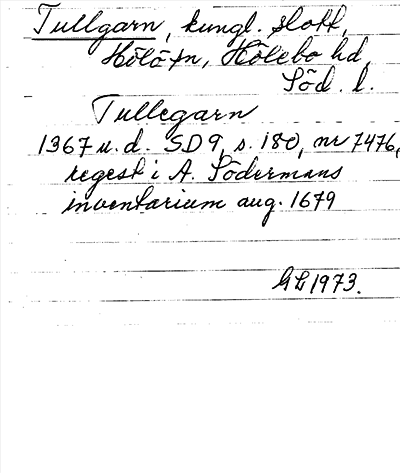 Tullgarn, kungl. slott,
Hölö sn, Hölebo hd,
Söd. l.
Tullegarn
1367 u.d. SD 9, s. 180, nr 7476,
regest i A. Södermans
inventarium aug. 1679
GL 1973.